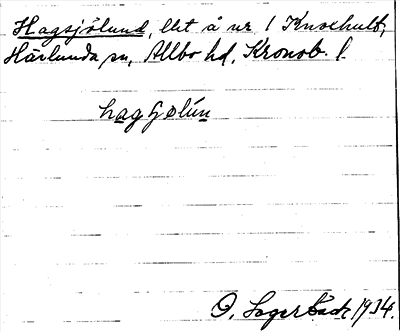 Hagsjölund, lht å nr 1 Knoxhult,
Härlunda sn, Allbo hd, Kronob. l.
hagʃølún
O. Lagerbäck 1934.